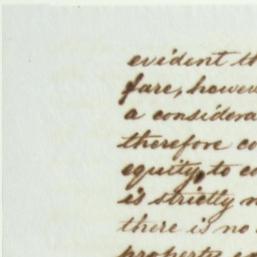 evident th
fare, howev
a considera
therefore co
equity, to co
is strictly n
there is no
property